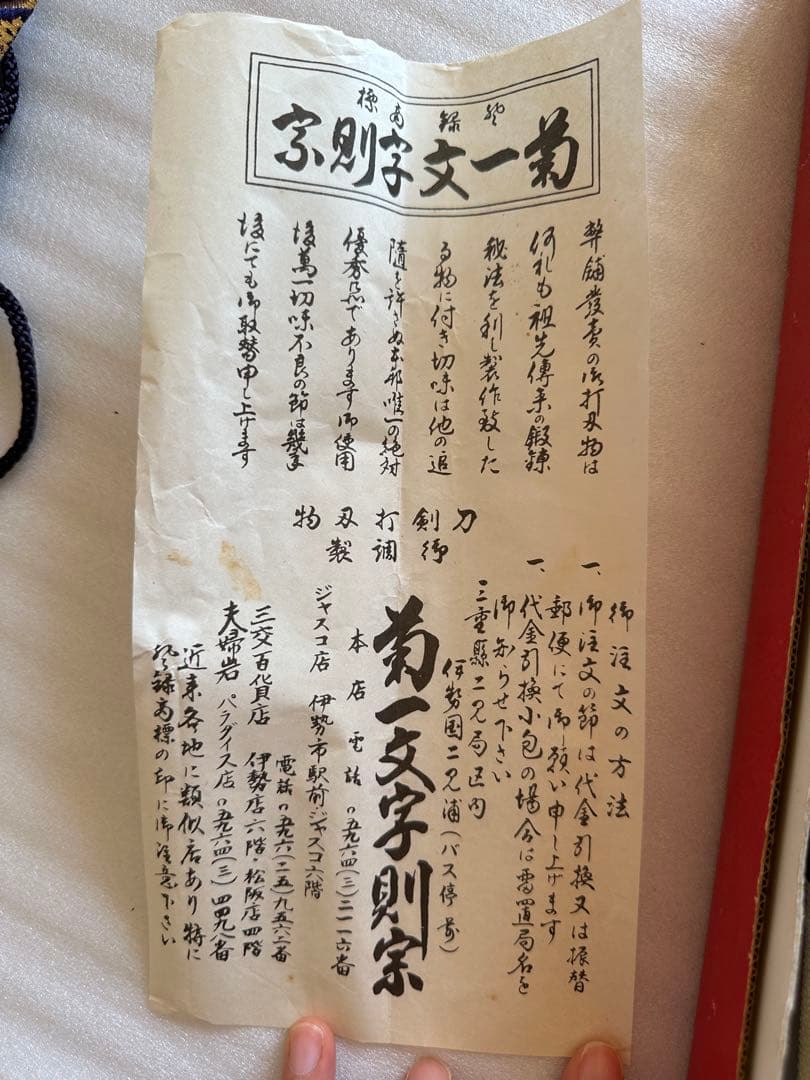 登録商標
菊一文字則宗
弊舗発売の御打刃物は
何れも祖先傳来の鍛錬
秘法を利し製作致した
る物に付き切味は他の追
随を許さぬ本邦唯一の絶対
優秀品であります御使用
後萬一切味不良の節は幾年
後にても御取替申し上げます
刀剣打刃物
御調製
御注文の方法
一、御注文の節は代金引換又は振替
郵便にて御願い申し上げます
一、代金引換小包の場合は電置局名を
御知らせ下さい
三重縣二見局区内
伊勢国二見浦(バス停前)
菊一文字則宗
本店 電話〇五九六四(三)二一一六番
ジャスコ店 伊勢市駅前・ジャスコ六階
電話〇五九六(二五)九五六二番
三交百貨店 伊勢店六階・松阪店四階
夫婦岩 パラダイス店〇五九六四(三)四四九八番
近来各地に類似店あり特に
登録商標の印に御注意下さい